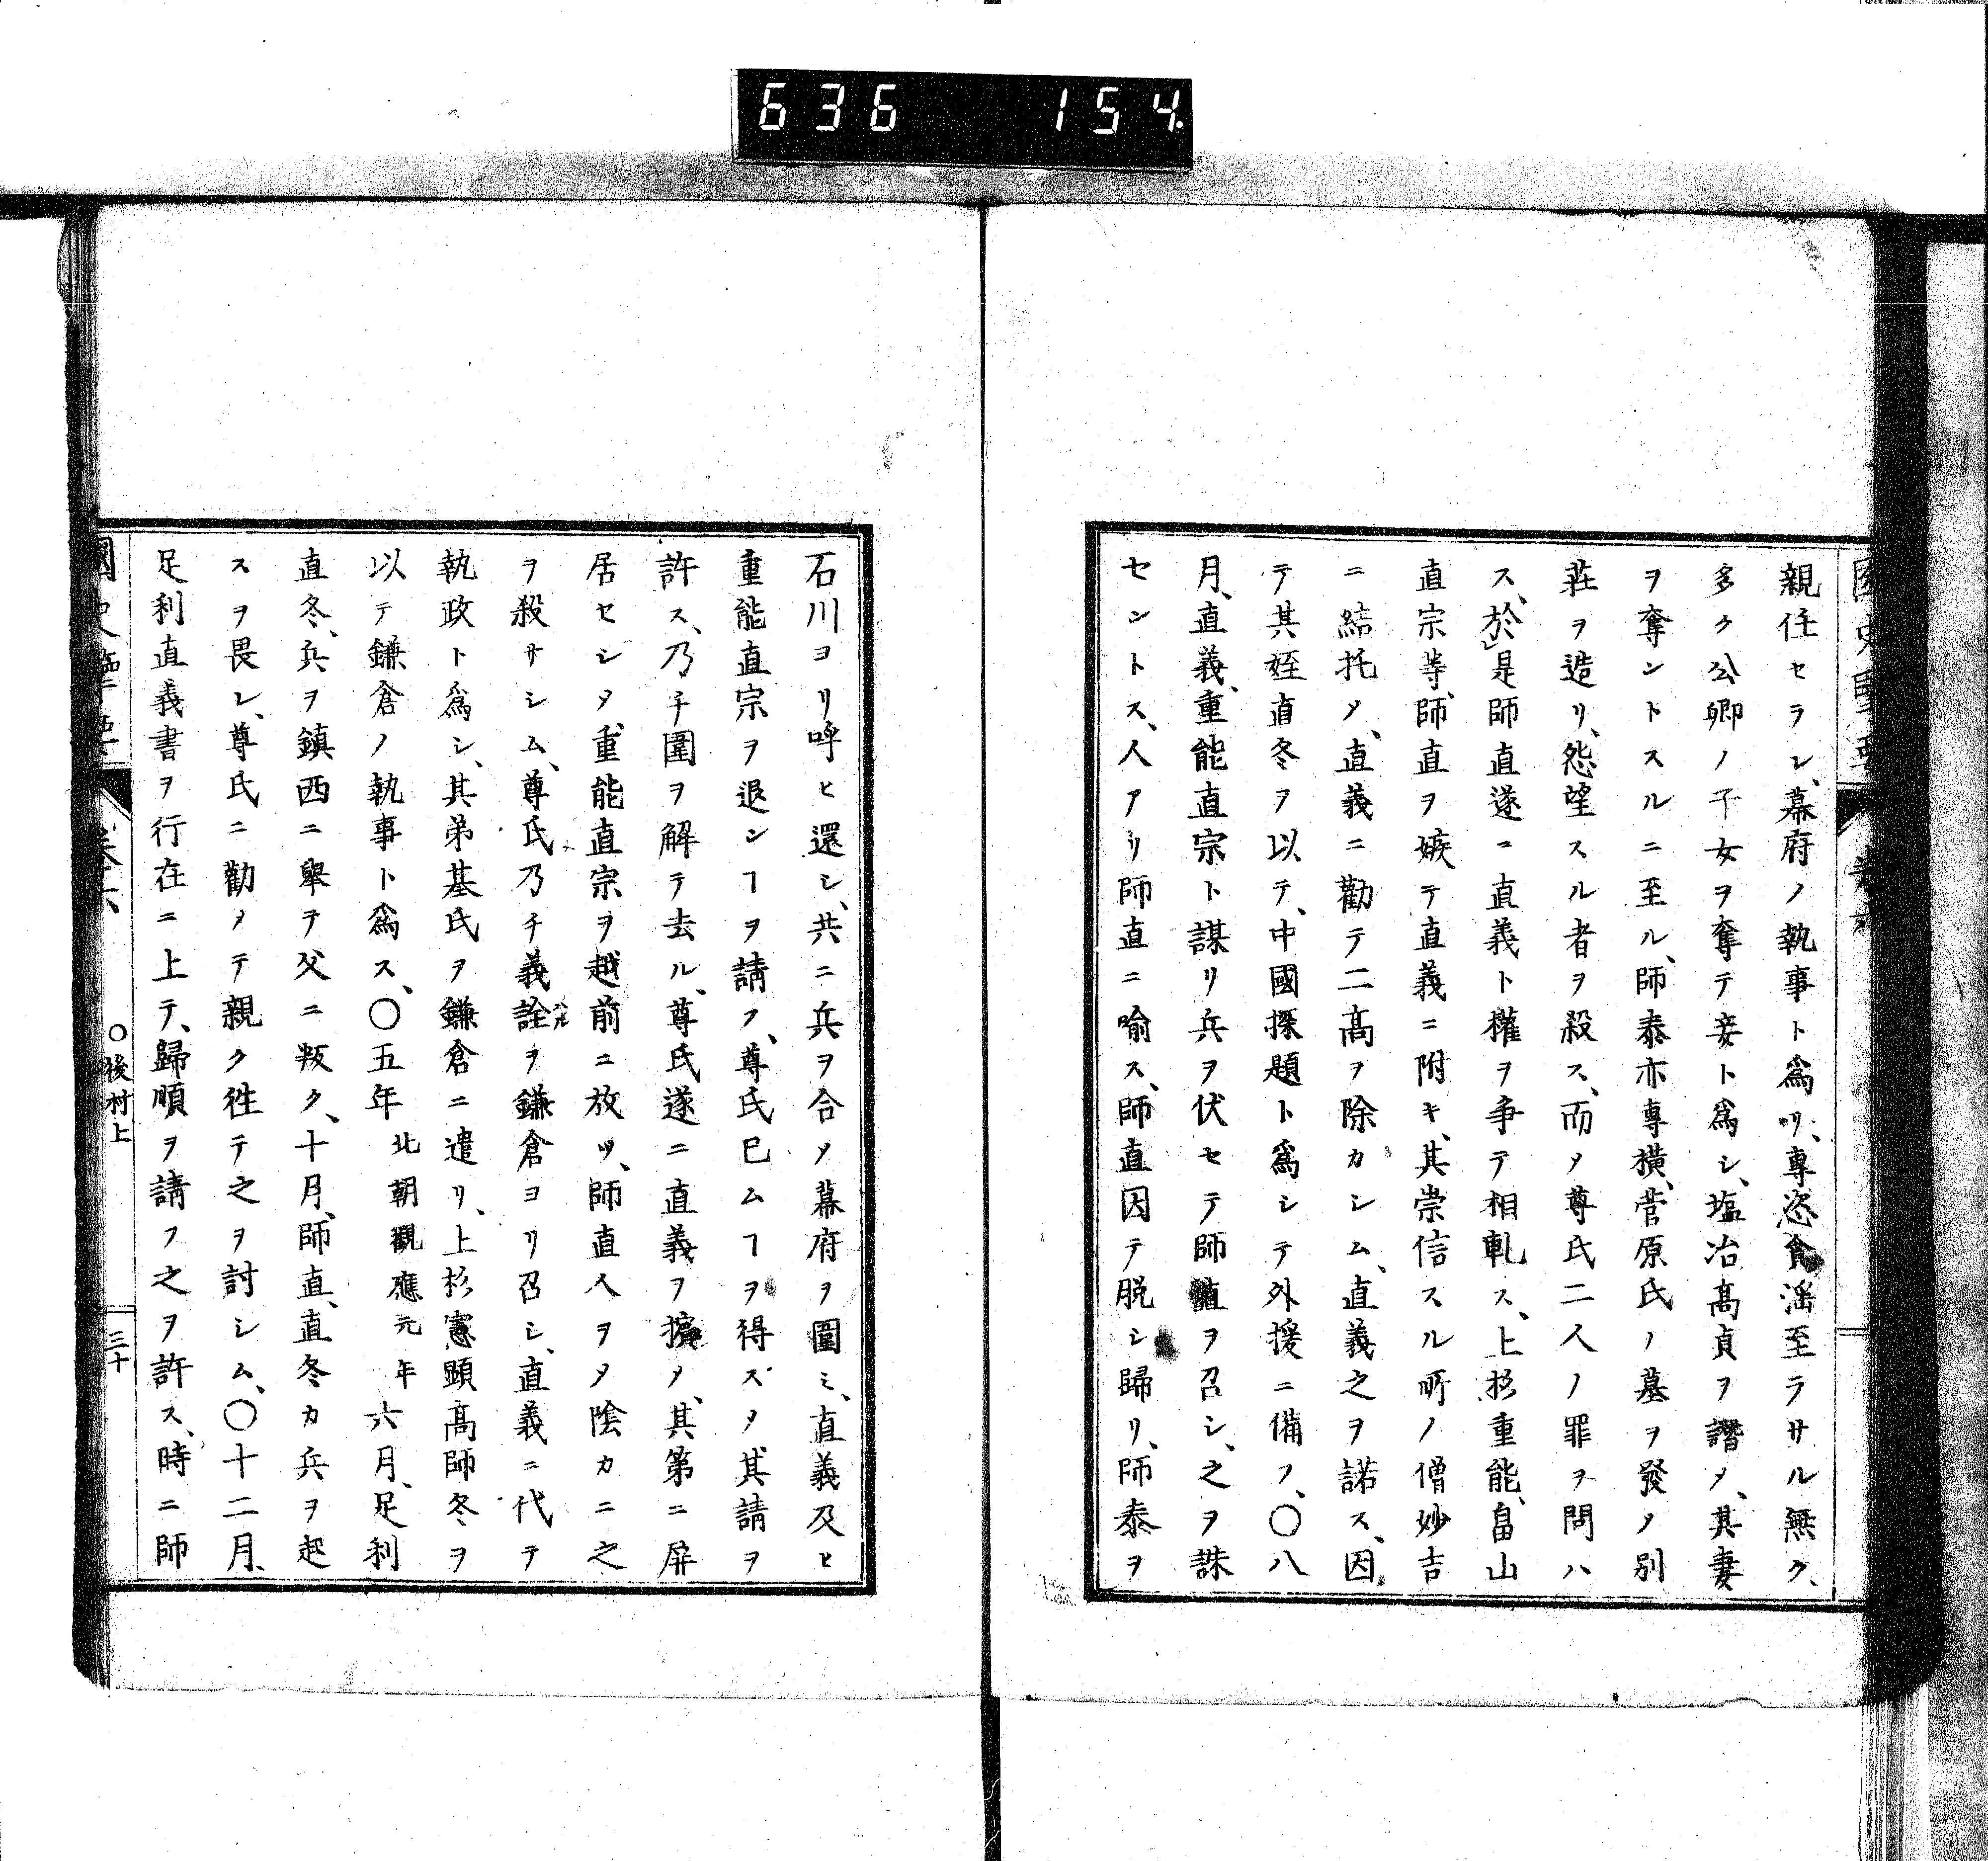 636 154
親任セラレ、幕府ノ執事ト爲リ、專恣貪滛至ラサル無ク、
多ク公卿ノ子女ヲ奪テ妾ト爲シ、塩冶髙貞ヲ譖〆、其妻
ヲ奪ントスルニ至ル、師泰亦專横、菅原氏ノ墓ヲ發〆別
莊ヲ造リ、怨望スル者ヲ殺ス、而〆尊氏二人ノ罪ヲ問ハ
ス、於是師直遂ニ直義ト權ヲ爭テ相軋ス、上杉重能、畠山
直宗等、師直ヲ嫉テ直義ニ附キ、其崇信スル所ノ僧妙吉
ニ結托〆、直義ニ勸テ二髙ヲ除カシム、直義之ヲ諾ス、因
テ其姪直冬ヲ以テ、中國探題ト爲シテ外援ニ備フ、〇八
月、直義、重能直宗ト謀リ兵ヲ伏セテ師直ヲ召シ、之ヲ誅
セントス、人アリ師直ニ喻ス、師直因テ脱シ歸リ、師泰ヲ
石川ヨリ呼ヒ還シ、共ニ兵ヲ合〆幕府ヲ圍ミ、直義及ヒ
重能直宗ヲ退ンヿヲ請フ、尊氏已ムヿヲ得ス〆其請ヲ
許ス、乃チ圍ヲ解テ去ル、尊氏遂ニ直義ヲ擯〆、其第ニ屏
居セシ〆、重能直宗ヲ越前ニ放ツ、師直人ヲ〆陰カニ之
ヲ殺サシム、尊氏乃チ義詮ヲ鎌倉ヨリ召シ、直義ニ代テ
執政ト爲シ、其弟基氏ヲ鎌倉ニ遣リ、上杉憲顯髙師冬ヲ
以テ鎌倉ノ執事ト爲ス、〇五年北朝觀應元年六月、足利
直冬、兵ヲ鎮西ニ舉テ父ニ叛ク、十月、師直、直冬カ兵ヲ起
スヲ畏レ、尊氏ニ勸〆テ親ク徃テ之ヲ討シム、〇十二月、
足利直義書ヲ行在ニ上テ、歸順ヲ請フ之ヲ許ス、時ニ師
〇後村上 三十